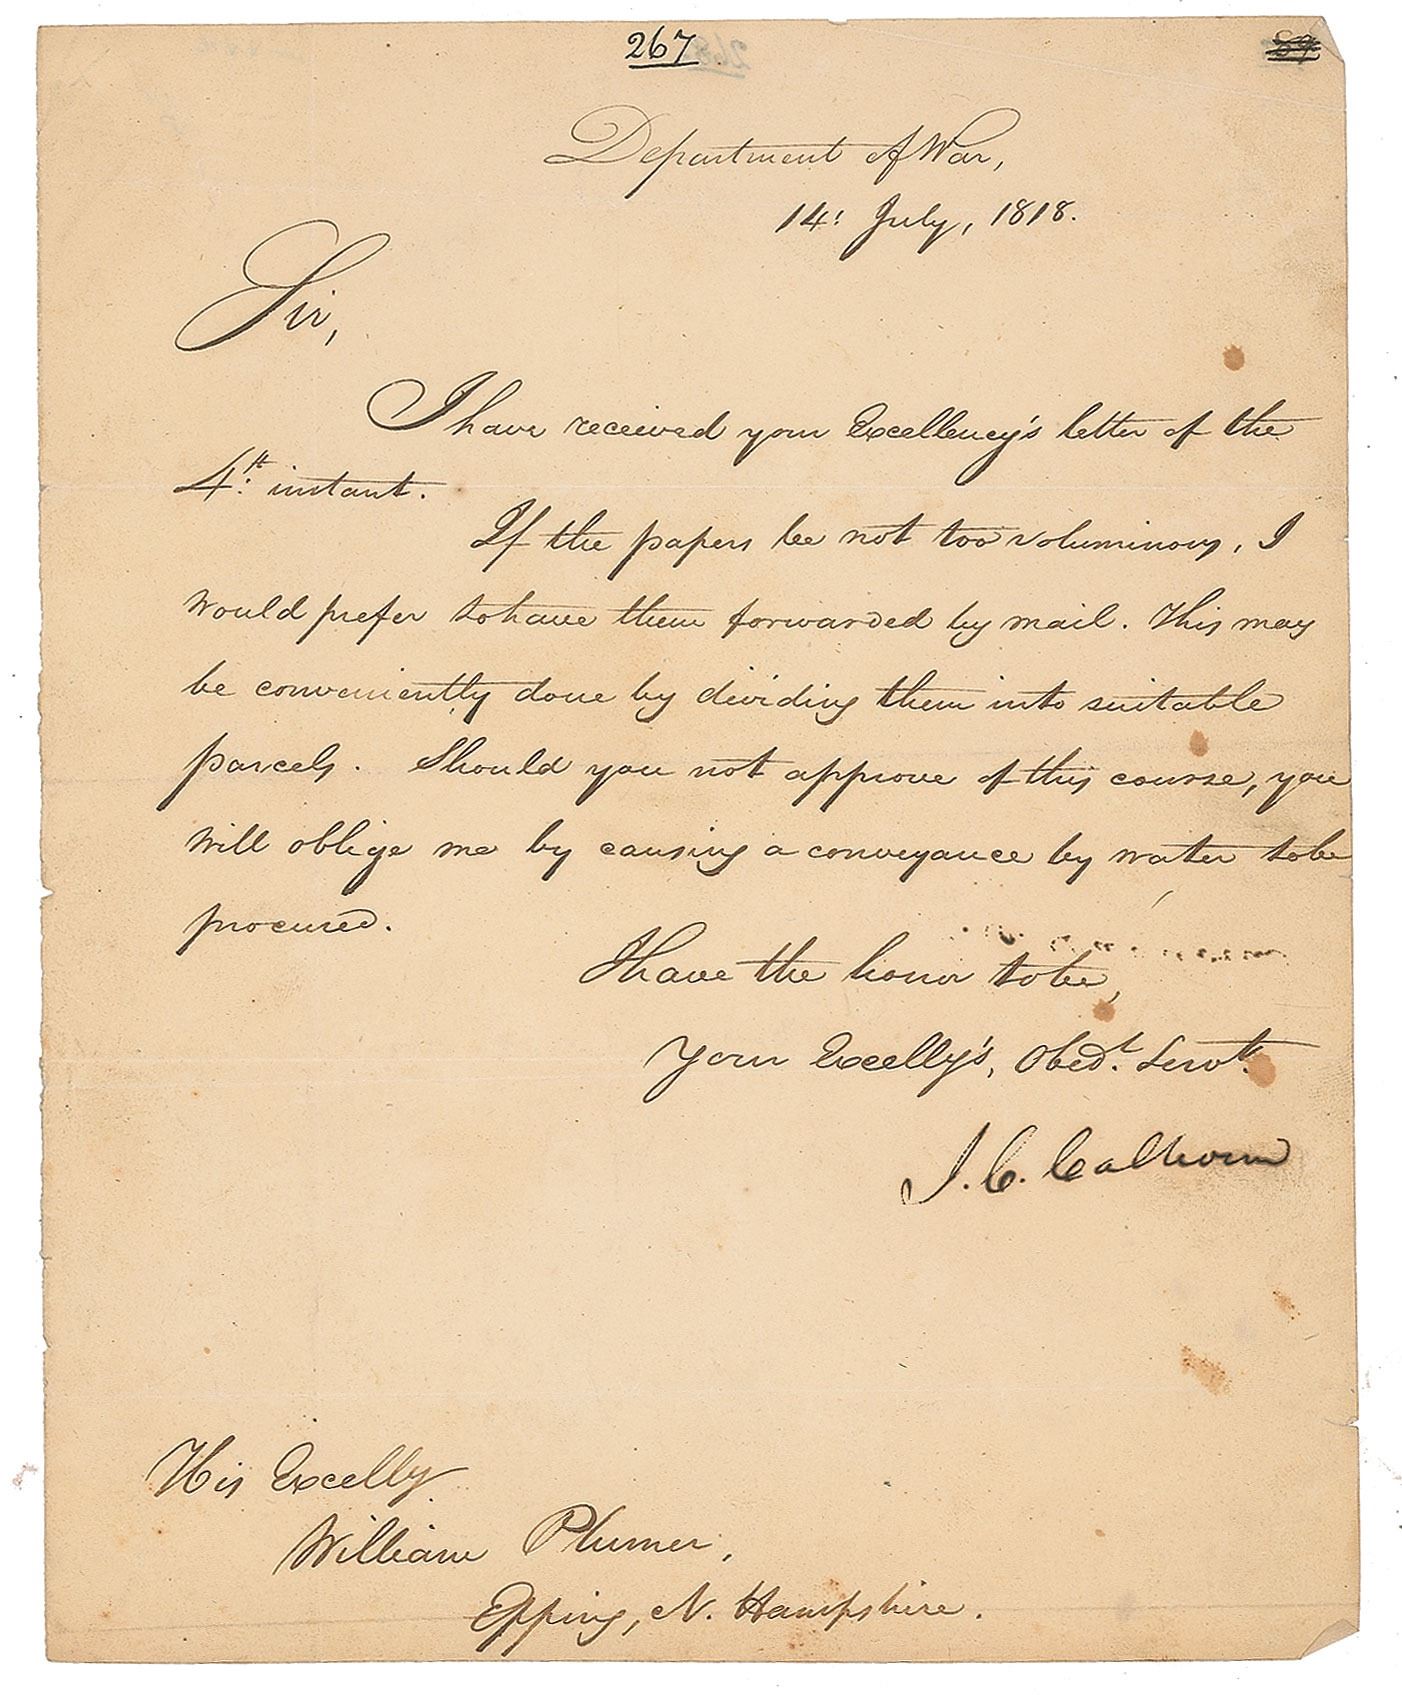 267
Department of War,
14: July, 1818.
Sir,
I have received your Excellency's letter of the
4th: instant.
If the papers be not too voluminous, I
would prefer to have them forwarded by mail. This may
be conveniently done by dividing them into suitable
parcels. Should you not approve of this course, you
will oblige me by causing a conveyance by water to be
procured.
I have the honor to be,
Your Excelly's, Obedt. Servt.
J. C. Calhoun
His Excelly
William Plumer,
Epping, N. Hampshire.